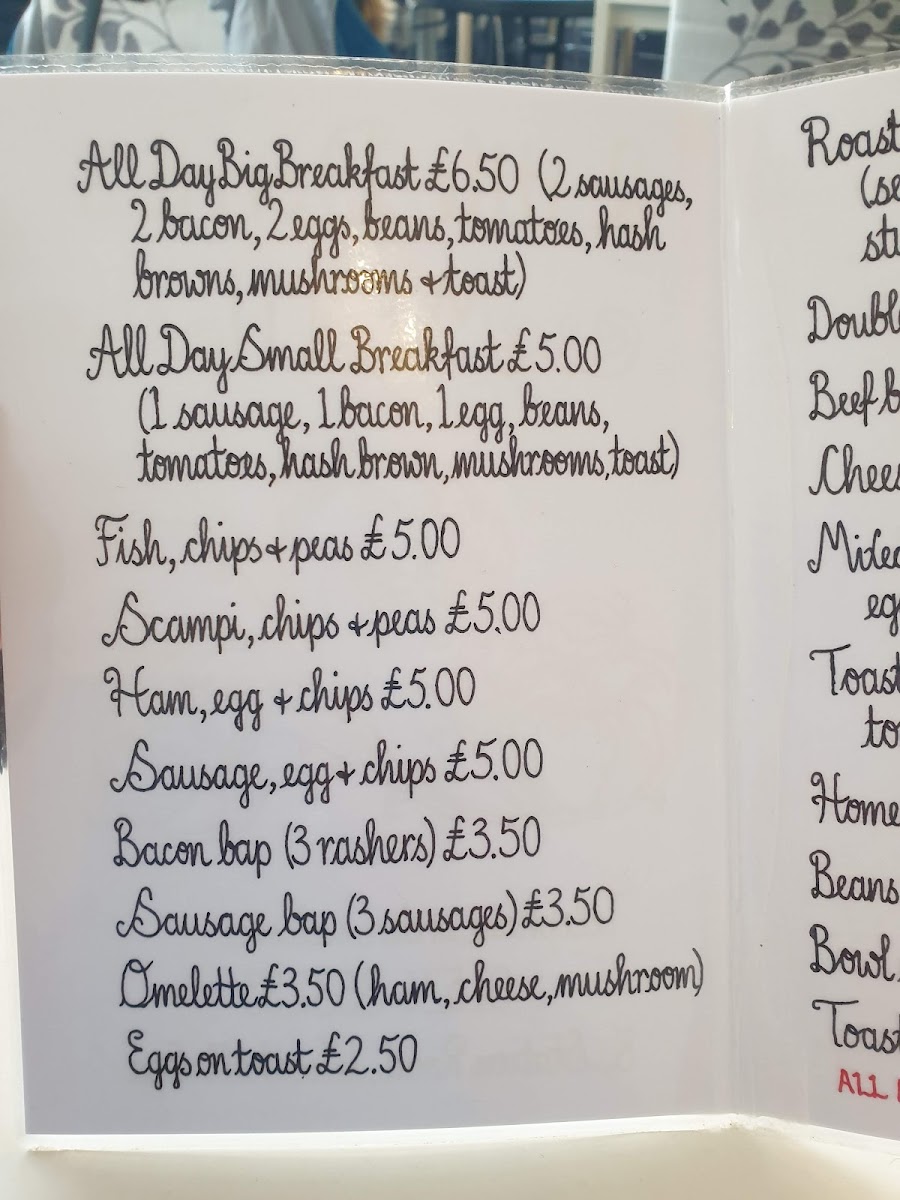 All Day Big Breakfast £6.50 (2 sausages,
2 bacon, 2 eggs, beans, tomatoes, hash
browns, mushrooms + toast)
All Day Small Breakfast £5.00
(1 sausage, 1 bacon, 1 egg, beans,
tomatoes, hash brown, mushrooms, toast)
Fish, chips + peas £5.00
Scampi, chips + peas £5.00
Ham, egg + chips £5.00
Sausage, egg + chips £5.00
Bacon bap (3 rashers) £3.50
Sausage bap (3 sausages) £3.50
Omelette £3.50 (ham, cheese, mushroom)
Eggs on toast £2.50
Roast
Beef
Home
Beans
Bowl
Toast
ALL